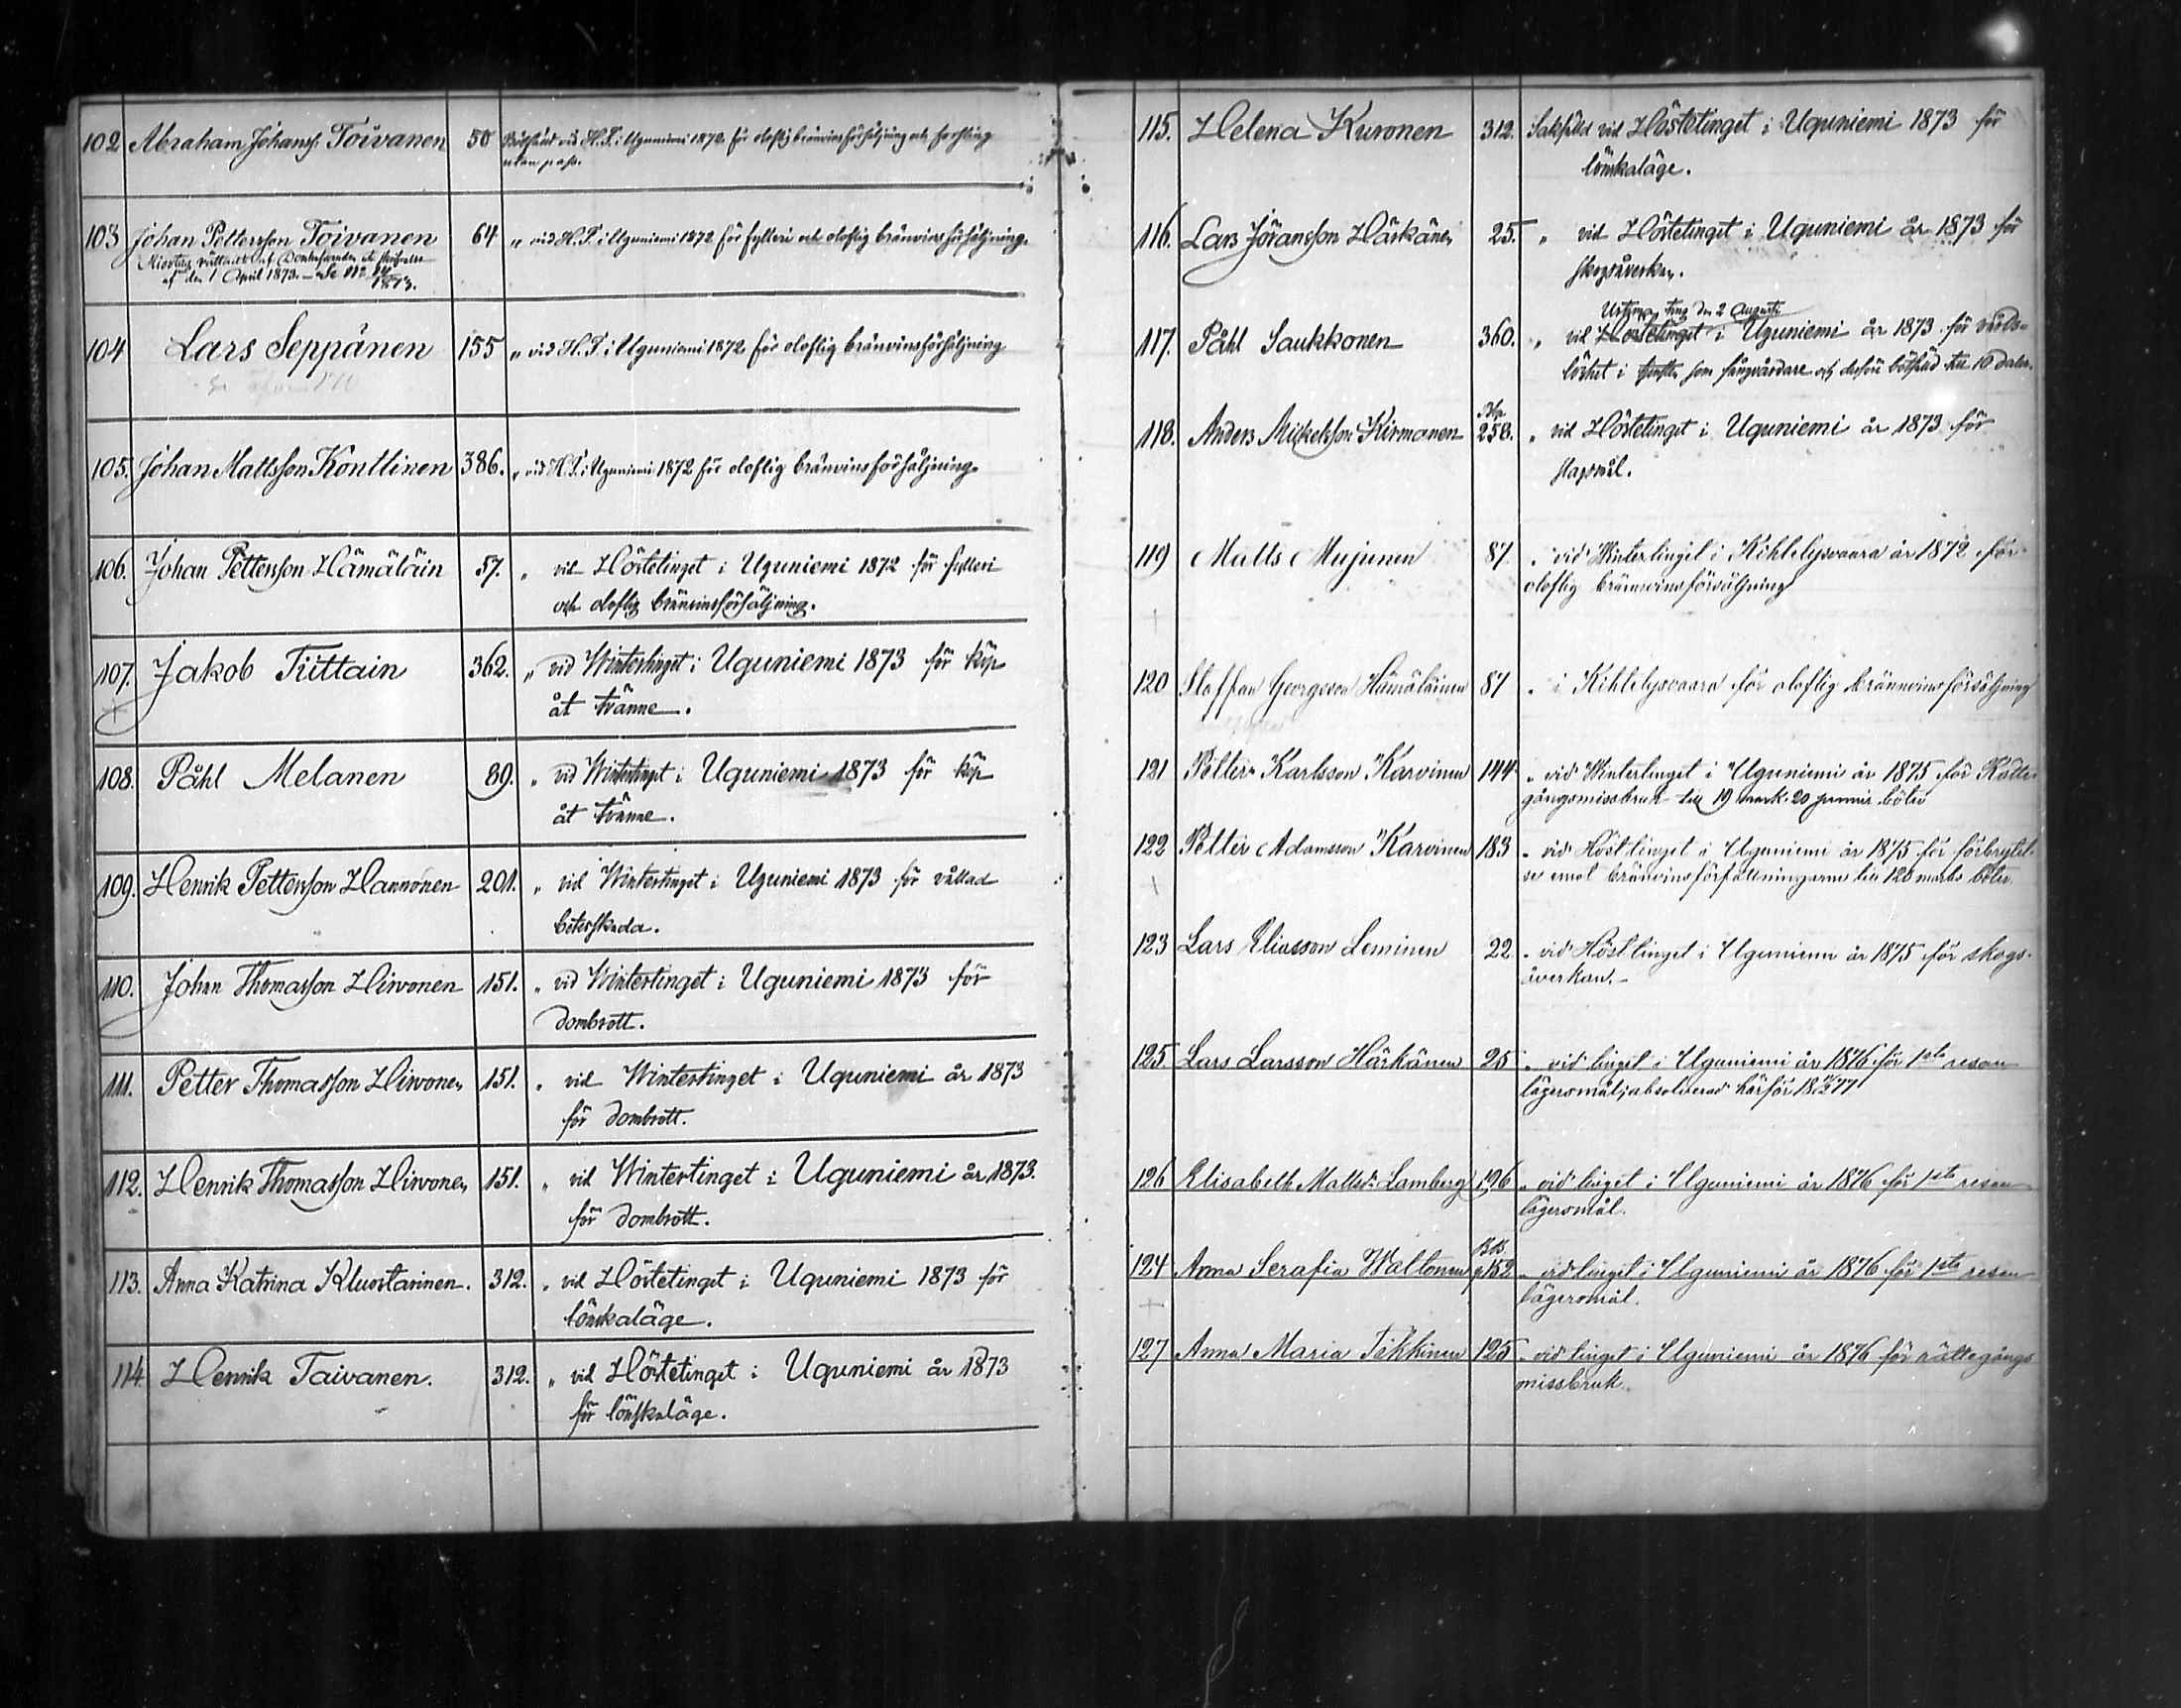 102 Abraham Johanss. Toivanen 50 Bötfäld vid H.T. i Uguniemi 1872 för oloflig bränvinsförsäljning och
utan pass.
103 Johan Pettersson Toivanen 64 „ vid H.T. i Uguniemi 1872 för fylleri och oloflig bränvinsförsäljning.
af den 1 April 1873. – Se
104 Lars Seppänen 155 „ vid H.T. i Uguniemi 1872 för oloflig bränvinsförsäljning
105. Johan Mattsson Konttinen 386. „ vid H.T. i Uguniemi 1872 för oloflig bränvinsförsäljning.
106. Johan Pettersson Hämäläin 57. „ vid Höstetinget i Uguniemi 1872 för fylleri
och oloflig bränvinsförsäljning.
107. Jakob Tiittain 362. „ vid Wintertinget i Uguniemi 1873 för köp
åt tvänne.
108. Påhl Melanen 89. „ vid Wintertinget i Uguniemi 1873 för köp
åt tvänne.
109. Henrik Pettersson Hannonen 201. „ vid Wintertinget i Uguniemi 1873 för vållad
betesskada.
110. Johan Thomasson Hirvonen 151. „ vid Wintertinget i Uguniemi 1873 för
dombrott.
111. Petter Thomasson Hirvonen 151. „ vid Wintertinget i Uguniemi år 1873
för dombrott.
112. Henrik Thomasson Hirvonen 151. „ vid Wintertinget i Uguniemi år 1873.
för dombrott.
113. Anna Katrina Kluostarinen. 312. „ vid Höstetinget i Uguniemi 1873 för
lönskaläge.
114. Henrik Taivanen. 312. „ vid Höstetinget i Uguniemi år 1873
för lönskaläge.
115. Helena Kuronen 312. Sakfäld vid Höstetinget i Uguniemi 1873 för
lönskaläge.
116. Lars Jöransson Härkänen 25. „ vid Höstetinget i Uguniemi år 1873 för
skogsåverkan.
Urtima ting den 2 Augusti
117. Påhl Saukkonen 360. „ vid Höstetinget i Uguniemi år 1873 för vårds-
löshet i tjensten som fångvårdare och derföre bötfäld till 10 daler.
118. Anders Mickelsson Kirmanen 258. „ vid Höstetinget i Uguniemi år 1873 för
slagsmål.
119 Matts Mujunen 87 „ vid Wintertinget i Kihtelysvaara år 1872 för
oloflig bränvinsförsäljning
120 Staffan Georgsson Hämäläinen 87 „ i Kihtelysvaara för oloflig bränvinsförsäljning
121 Petter Karlsson Karvinen 144 „ vid Wintertinget i Uguniemi år 1875 för Rätte-
gångsmissbruk till 19 mark 20 pennis böter
122 Petter Adamsson Karvinen 183 „ vid Hösttinget i Uguniemi år 1875 för förbrytel-
se emot bränvinsförfattningarne till 120 marks böter.
123 Lars Eliasson Leminen 22 „ vid Hösttinget i Uguniemi år 1875 för skogs-
åverkan.–
125. Lars Larsson Härkänen 25 „ vid tinget i Uguniemi år 1876 för 1sta resan
lägersmål; absolverad härför
126 Elisabeth Mattsdr Lamberg 126 „ vid tinget i Uguniemi år 1876 för 1sta resan
lägersmål.
124 Anna Serafia Waltonen p 152 „ vid tinget i Uguniemi år 1876 för 1sta resan
lägersmål.
127 Anna Maria Tikkinen 125 „ vid tinget i Uguniemi år 1876 för rättegångs
missbruk.